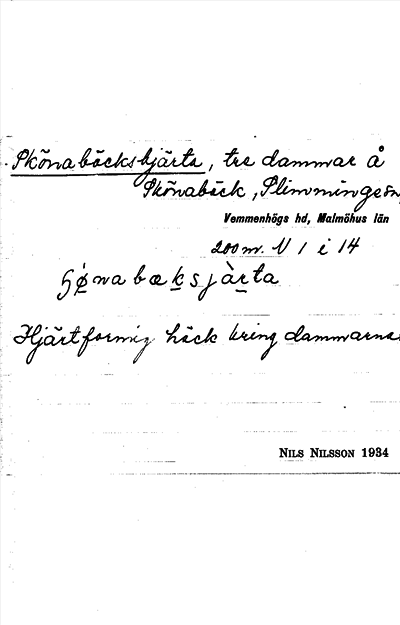 Skönabäckshjärta, tre dammar å
Skönabäck, Slimminge sn,
Vemmenhögs hd, Malmöhus län
200 m. N 1 i 14
Hjärtformig häck kring dammarna
NILS NILSSON 1934